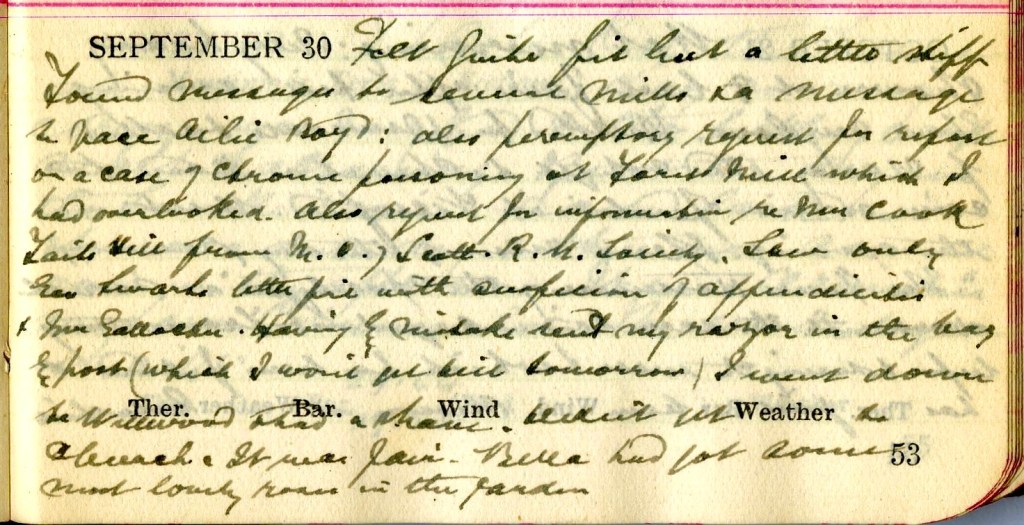 SEPTEMBER 30 Felt quite fit but a little stiff
Found messages to several mills & a message
to vacc Ailie Boyd: also peremptory request for report
on a case of chrome poisoning at Forest Mill which I
had overlooked. Also request for information re Mrs Cook
Hill from M. O. of Scott. R. M. Society. Saw only
Geo little girl with suspicion of appendicitis
& Mrs Gallacher. Having by mistake sent my razor in the bag
by post (which I won't get till tomorrow) I went down
to Wellwood & had a shave. Didn't get to
Ther. Bar. Wind Weather
church. It was fair. Bella had got some
most lovely roses in the garden
53